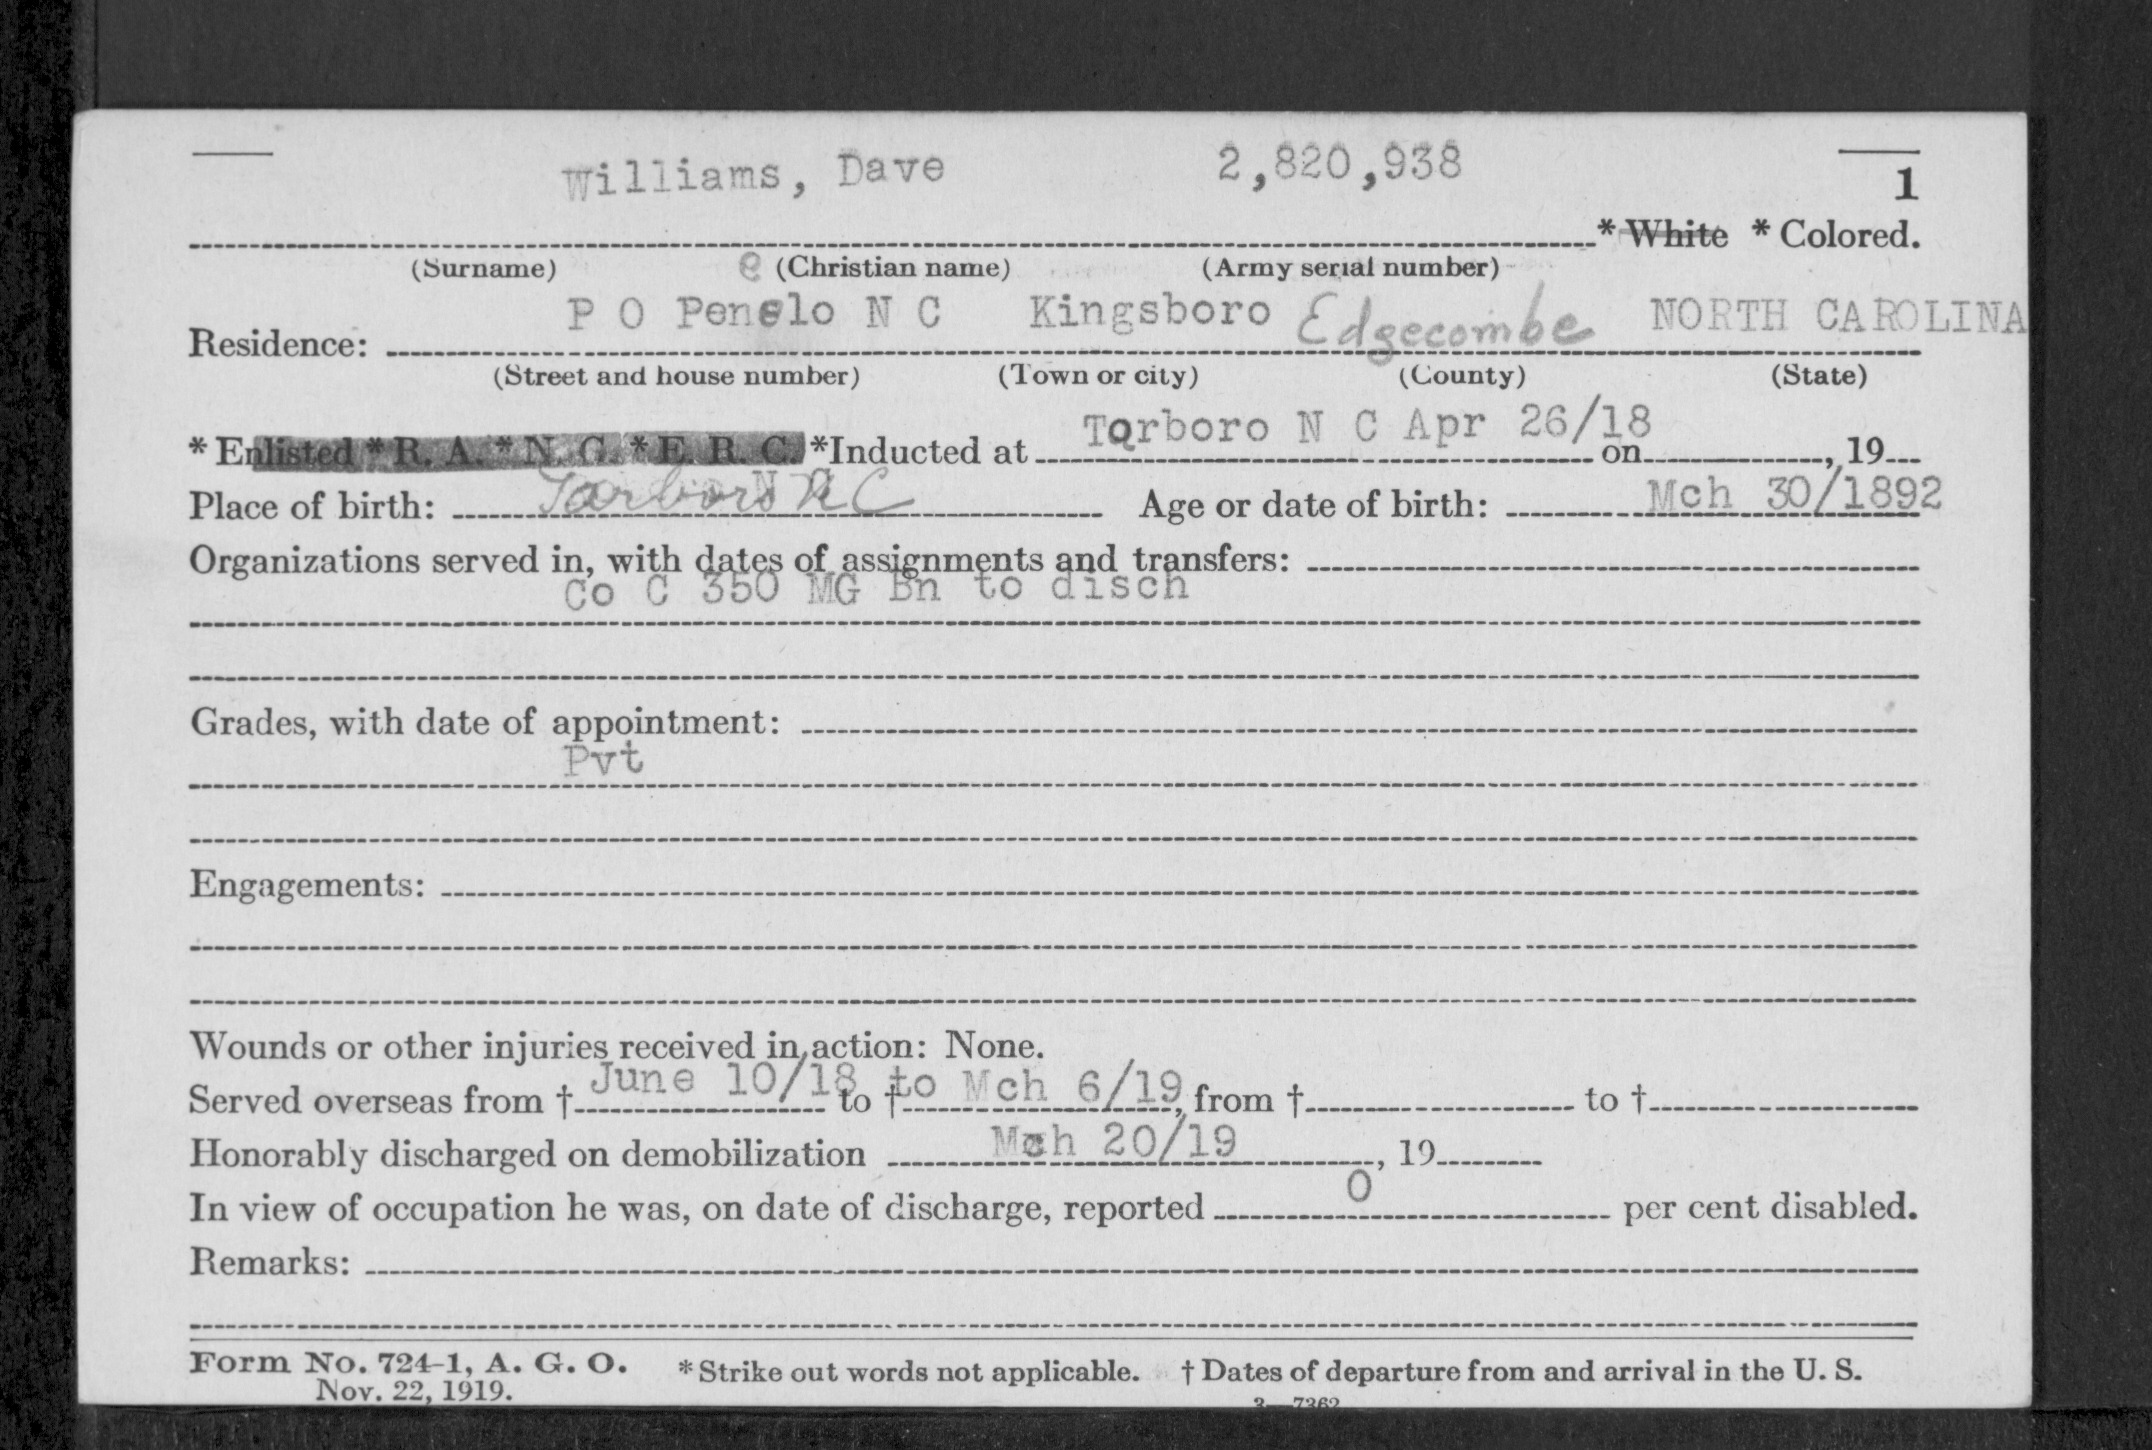 Williams, Dave 2,820,938 1
* White * Colored.
(Surname) e (Christian name) (Army serial number)
P O Penelo N C Kingsboro Edgecombe NORTH CAROLINA
Residence:
(Street and house number) (Town or city) (County) (State)
Tarboro N C Apr 26/18
* Enlisted * R. A. * N. G. * E. R. C. *Inducted at on , 19
Place of birth: Tarboro N C Age or date of birth: Mch 30/1892
Organizations served in, with dates of assignments and transfers:
Co C 350 MG Bn to disch
Grades, with date of appointment:
Pvt
Engagements:
Wounds or other injuries received in action: None.
Served overseas from † June 10/18 to † to Mch 6/19, from † to †
Honorably discharged on demobilization Mch 20/19, 19
In view of occupation he was, on date of discharge, reported 0 per cent disabled.
Remarks:
Form No. 724-1, A. G. O. * Strike out words not applicable. † Dates of departure from and arrival in the U. S.
Nov. 22, 1919. 3—7362